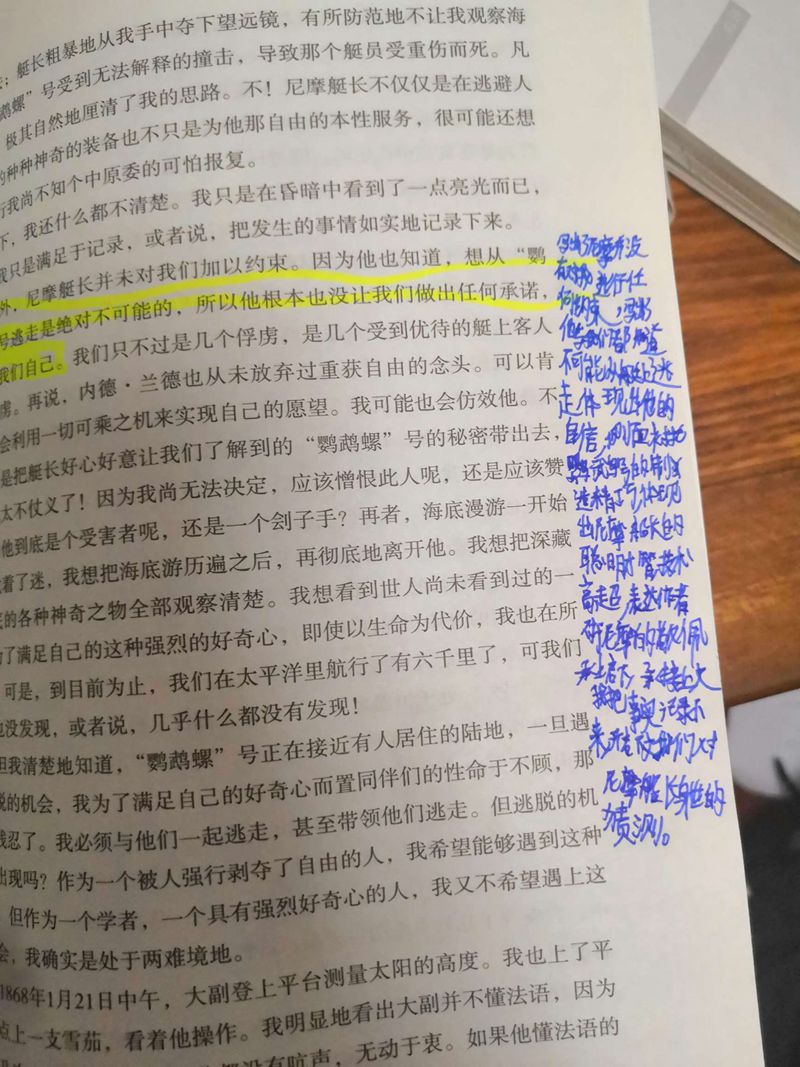 ；艇长粗暴地从我手中夺下望远镜，有所防范地不让我观察海
”号受到无法解释的撞击，导致那个艇员受重伤而死。凡
极其自然地厘清了我的思路。不！尼摩艇长不仅仅是在逃避人
的种种神奇的装备也不只是为他那自由的本性服务，很可能还想
行我尚不知个中原委的可怕报复。
下，我还什么都不清楚。我只是在昏暗中看到了一点亮光而已，
我只是满足于记录，或者说，把发生的事情如实地记录下来。
外，尼摩艇长并未对我们加以约束。因为他也知道，想从“鹦
号逃走是绝对不可能的，所以他根本也没让我们做出任何承诺，
我们自己。我们只不过是几个俘虏，是几个受到优待的艇上客人
虏。再说，内德·兰德也从未放弃过重获自由的念头。可以肯
会利用一切可乘之机来实现自己的愿望。我可能也会仿效他。不
是把艇长好心好意让我们了解到的“鹦鹉螺”号的秘密带出去，
太不仗义了！因为我尚无法决定，应该憎恨此人呢，还是应该赞
他到底是个受害者呢，还是一个刽子手？再者，海底漫游一开始
着了迷，我想把海底游历遍之后，再彻底地离开他。我想把深藏
的各种神奇之物全部观察清楚。我想看到世人尚未看到过的一
为了满足自己的这种强烈的好奇心，即使以生命为代价，我也在所
可是，到目前为止，我们在太平洋里航行了有六千里了，可我们
也没发现，或者说，几乎什么都没有发现！
但我清楚地知道，“鹦鹉螺”号正在接近有人居住的陆地，一旦遇
脱的机会，我为了满足自己的好奇心而置同伴们的性命于不顾，那
残忍了。我必须与他们一起逃走，甚至带领他们逃走。但逃脱的机
出现吗？作为一个被人强行剥夺了自由的人，我希望能够遇到这种
但作为一个学者，一个具有强烈好奇心的人，我又不希望遇上这
会，我确实是处于两难境地。
1868年1月21日中午，大副登上平台测量太阳的高度。我也上了平
点上一支雪茄，看着他操作。我明显地看出大副并不懂法语，因为
没有吭声，无动于衷。如果他懂法语的
写出了尼摩并没
有对我们任
何约束，
他与我们都知道
不可能从艇上逃
走体现出他的
自信，侧面
鹦鹉螺号的制
造精巧体现
出尼摩船长的
聪明才智技术
高超表达作者
对尼摩的敬佩
承上启下，承接上文
我把事实记录下
来，开启下文我们对
尼摩艇长身世的
猜测。